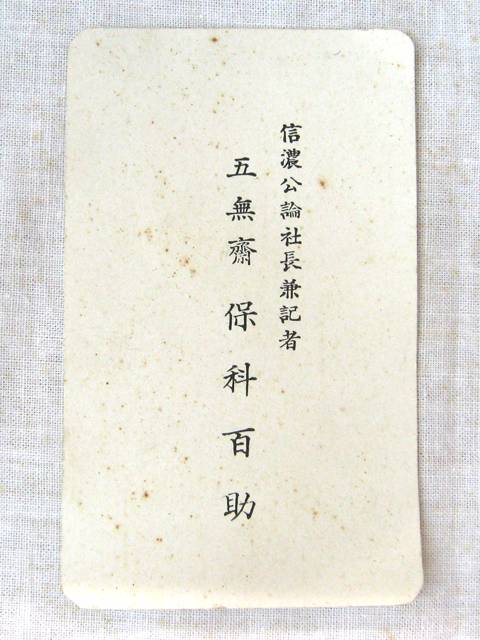 信濃公論社長兼記者
五無齋 保科百助